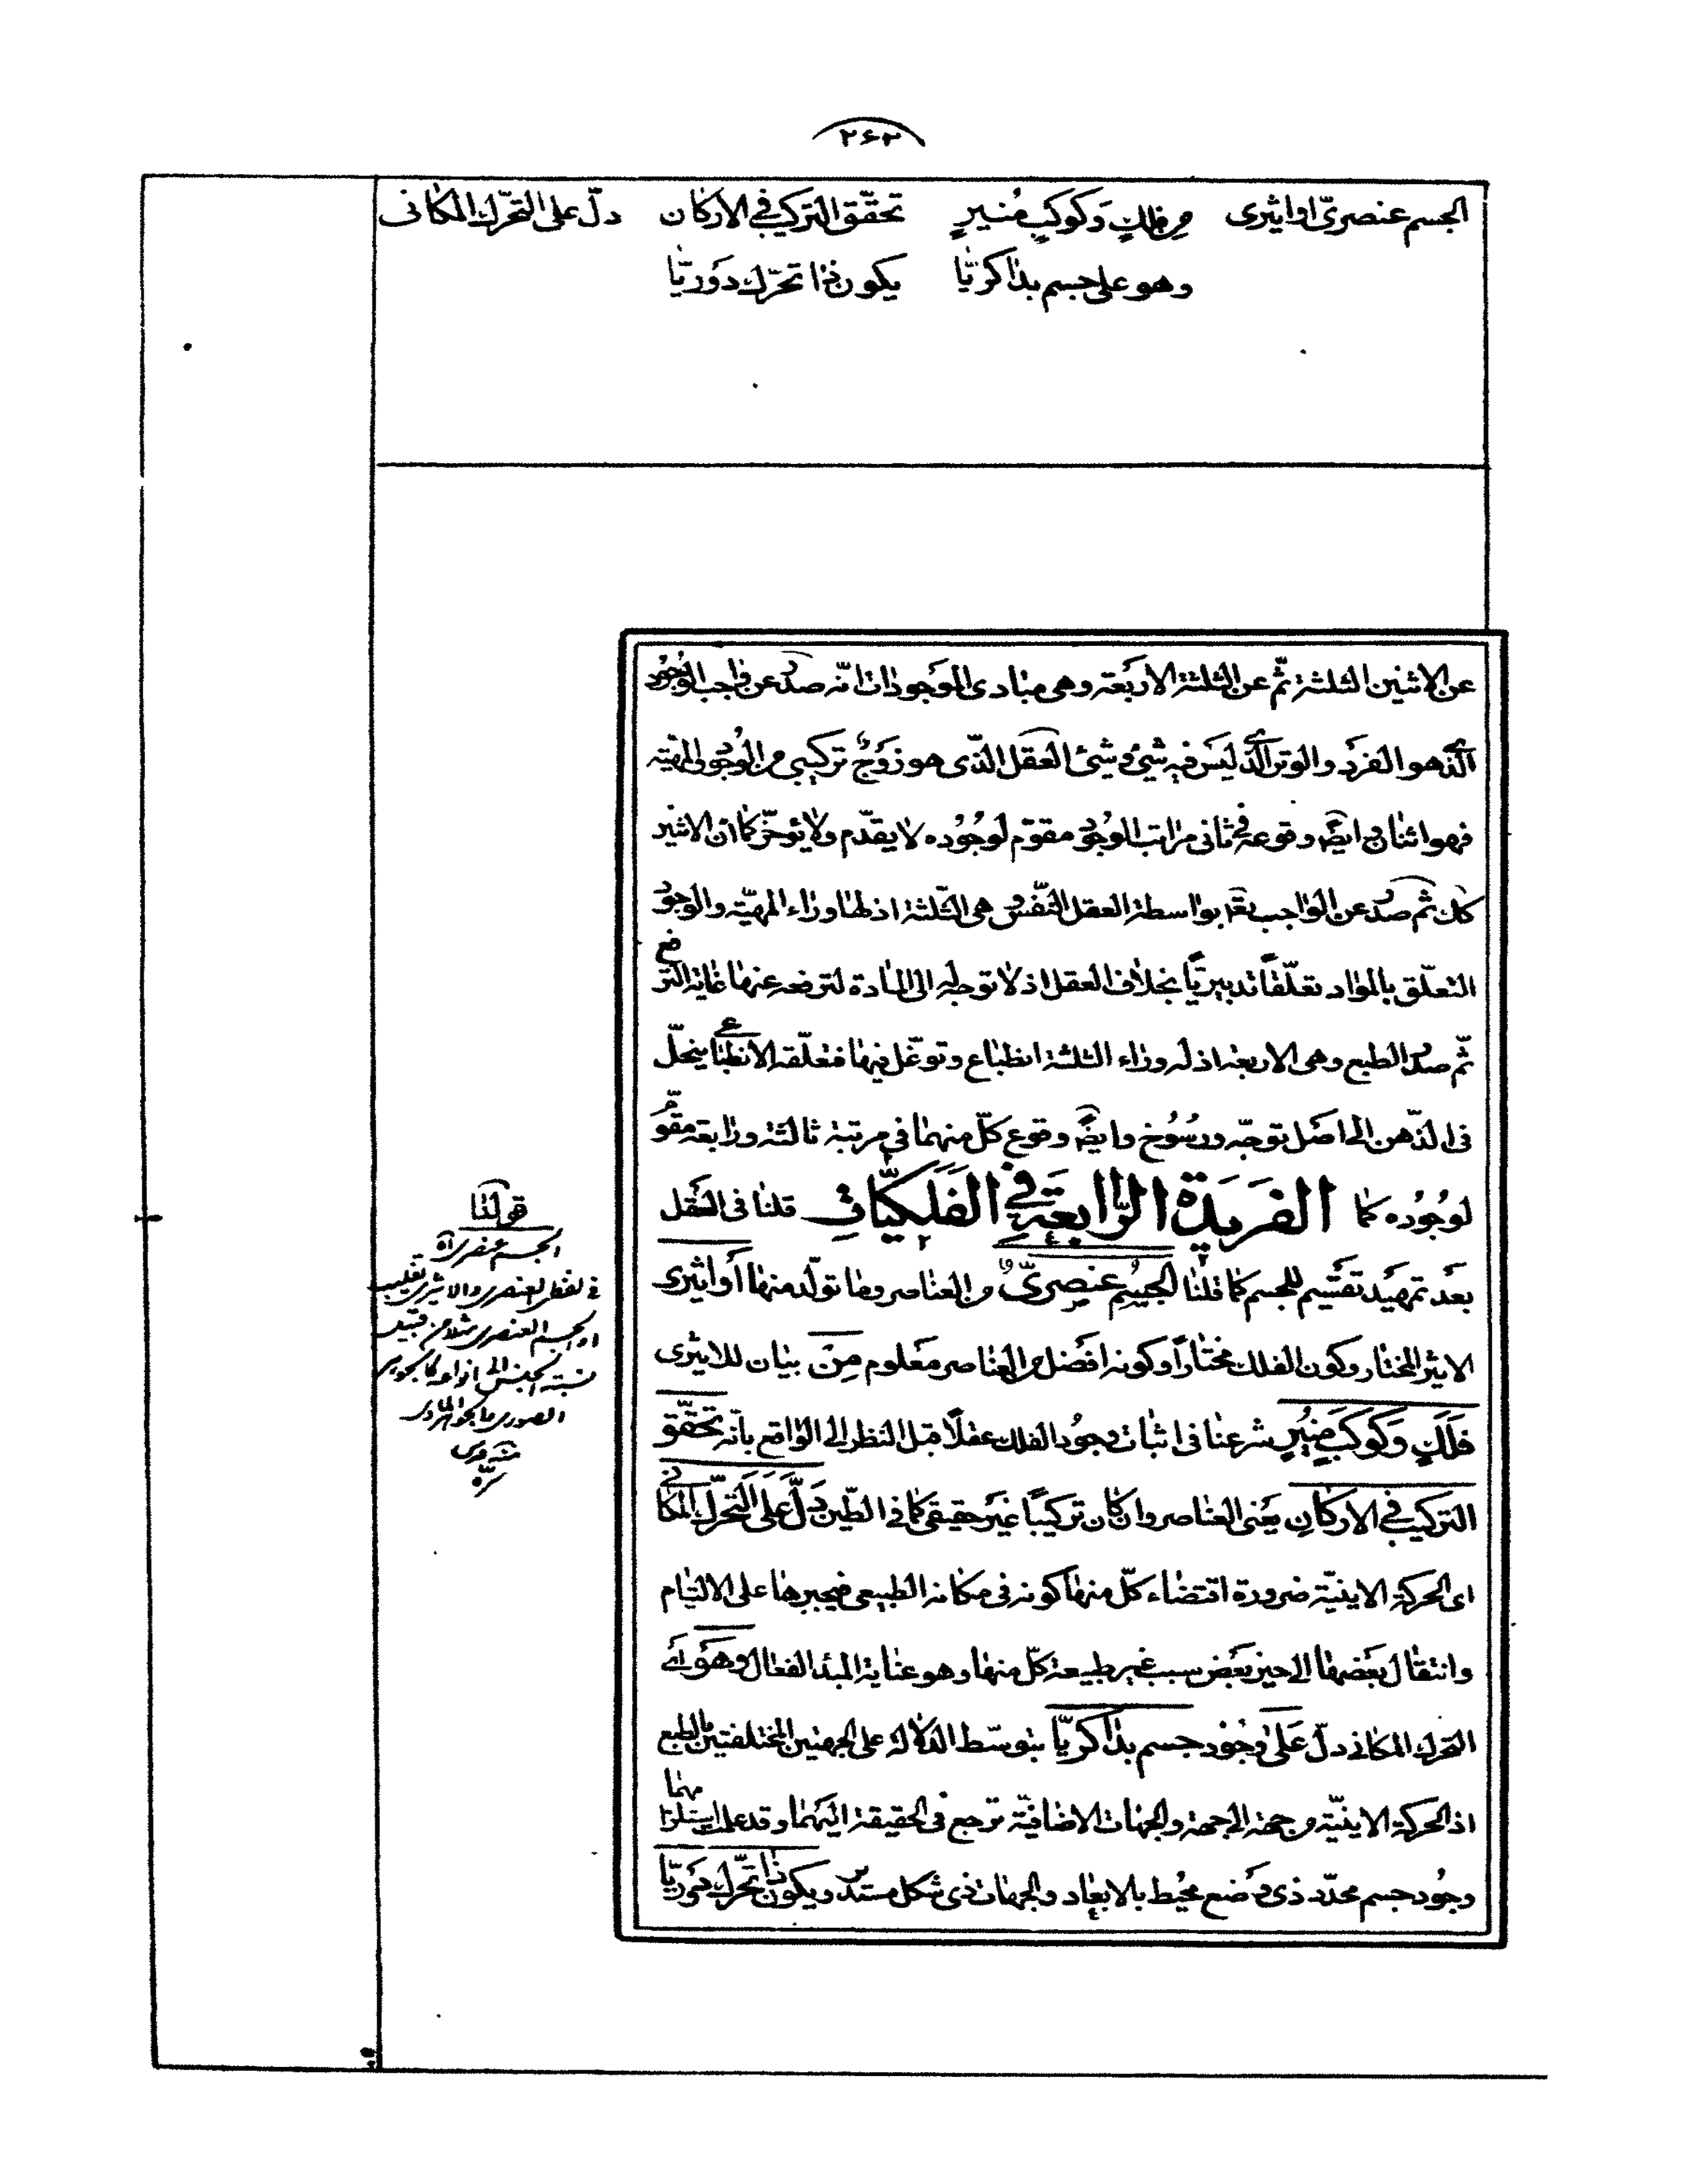 ۲۶۳
الجسم عنصریّ او اثیری من فلكٍ وَكوكبٍ مُنیرٍ تحقّق التركیب فی الاركان دلّ علی التحرّك المكانی
وهو علی جسم بدا كریّا یكون ذا تحرّك دَوریّا
عن الاثنین الثلثة ثمّ عن الثلثة الاربعة وهی مبادی الموجودات انّه صدر عن واجب الوجود
الّذی هو الفرد والوتر الّذی لیس فیه شیء وشیء العقل الّذی هو زوجٌ تركیبی من الوجود والمهیّة
فهو اثنان وایضاً وقوعه فی ثانی مراتب الوجود مقوّم لوجوده لا یتقدّم ولا یتوخّر كما انّ الاثنین
كك ثم صدر عن الواجب تعٰ بواسطة العقل النّفس وهی الثّلثة اذ لها وراء المهیّة والوجود
التعلّق بالموادّ تعلّقاً تدبیریّاً بخلاف العقل اذ لا توجه له الی المادة لترفعه عنها غایة الترفع
ثمّ صدر الطبع وهی الاربعة اذ له وراء الثلثة انطباع وتوغّل فیها فتعلّقه الانطباعی ینحلّ
فی الذّهن الی اصل توجّه ورسوخ وایضاً وقوع كلّ منهما فی مرتبة ثالثة ورابعة مقوّم
لوجوده كما الفَریدَة الرّابعَة فی الفَلَكیّات قلنا فی العقل
بعد تمهید تقسیم للجسم كما قلنا الجسم عنصریّ من العناصر وما تولّد منها أو اثیری
الاثیر المختار وكون الفلك مختاراً وكونه افضل من العناصر معلوم مِنَ بیان للاثیری
فَلَكٍ وَكَوكَبٍ مُنیرٍ شرعنا فی اثبات وجود الفلك عقلاً قبل النظر الی الواقع بانّه تحقّق
التركیب فی الاركان یعنی العناصر وان كان تركیباً غیر حقیقی كما فی الطّین دَلَّ عَلَی التحرّك المكانی
ای الحركة الاینیّة ضرورة اقتضاء كلّ منها كونه فی مكانه الطبیعی فیجبرها علی الالتیام
وانتقال بعضها الی حیز بعض سبب غیر طبیعة كلّ منها وهو عنایة المبدء الفعّال وهو ای
التحرك المكانی دلّ علی وجود جسم بدا كریّا بتوسّط الدّلالة علی الجهتین المختلفتین بالطبع
اذ الحركة الاینیّة من جهة الی جهة والجهات الاضافیّة ترجع فی الحقیقة الیهما وقد علمت استلزامهما
وجود جسم محدّد ذی وضع محیط بالابعاد والجهات ذی شكل مستدیر ویكون ذا تحرّك دَوریّا
قولنا
الجسم عنصری آه
فی لفظ العنصری والاثیری تغلیب
او الجسم العنصری مثلا من قبیل
نسبة الجنس الی انواعه كالجوهر
الصوری والجوهر المادی
منه قدس
سرّه